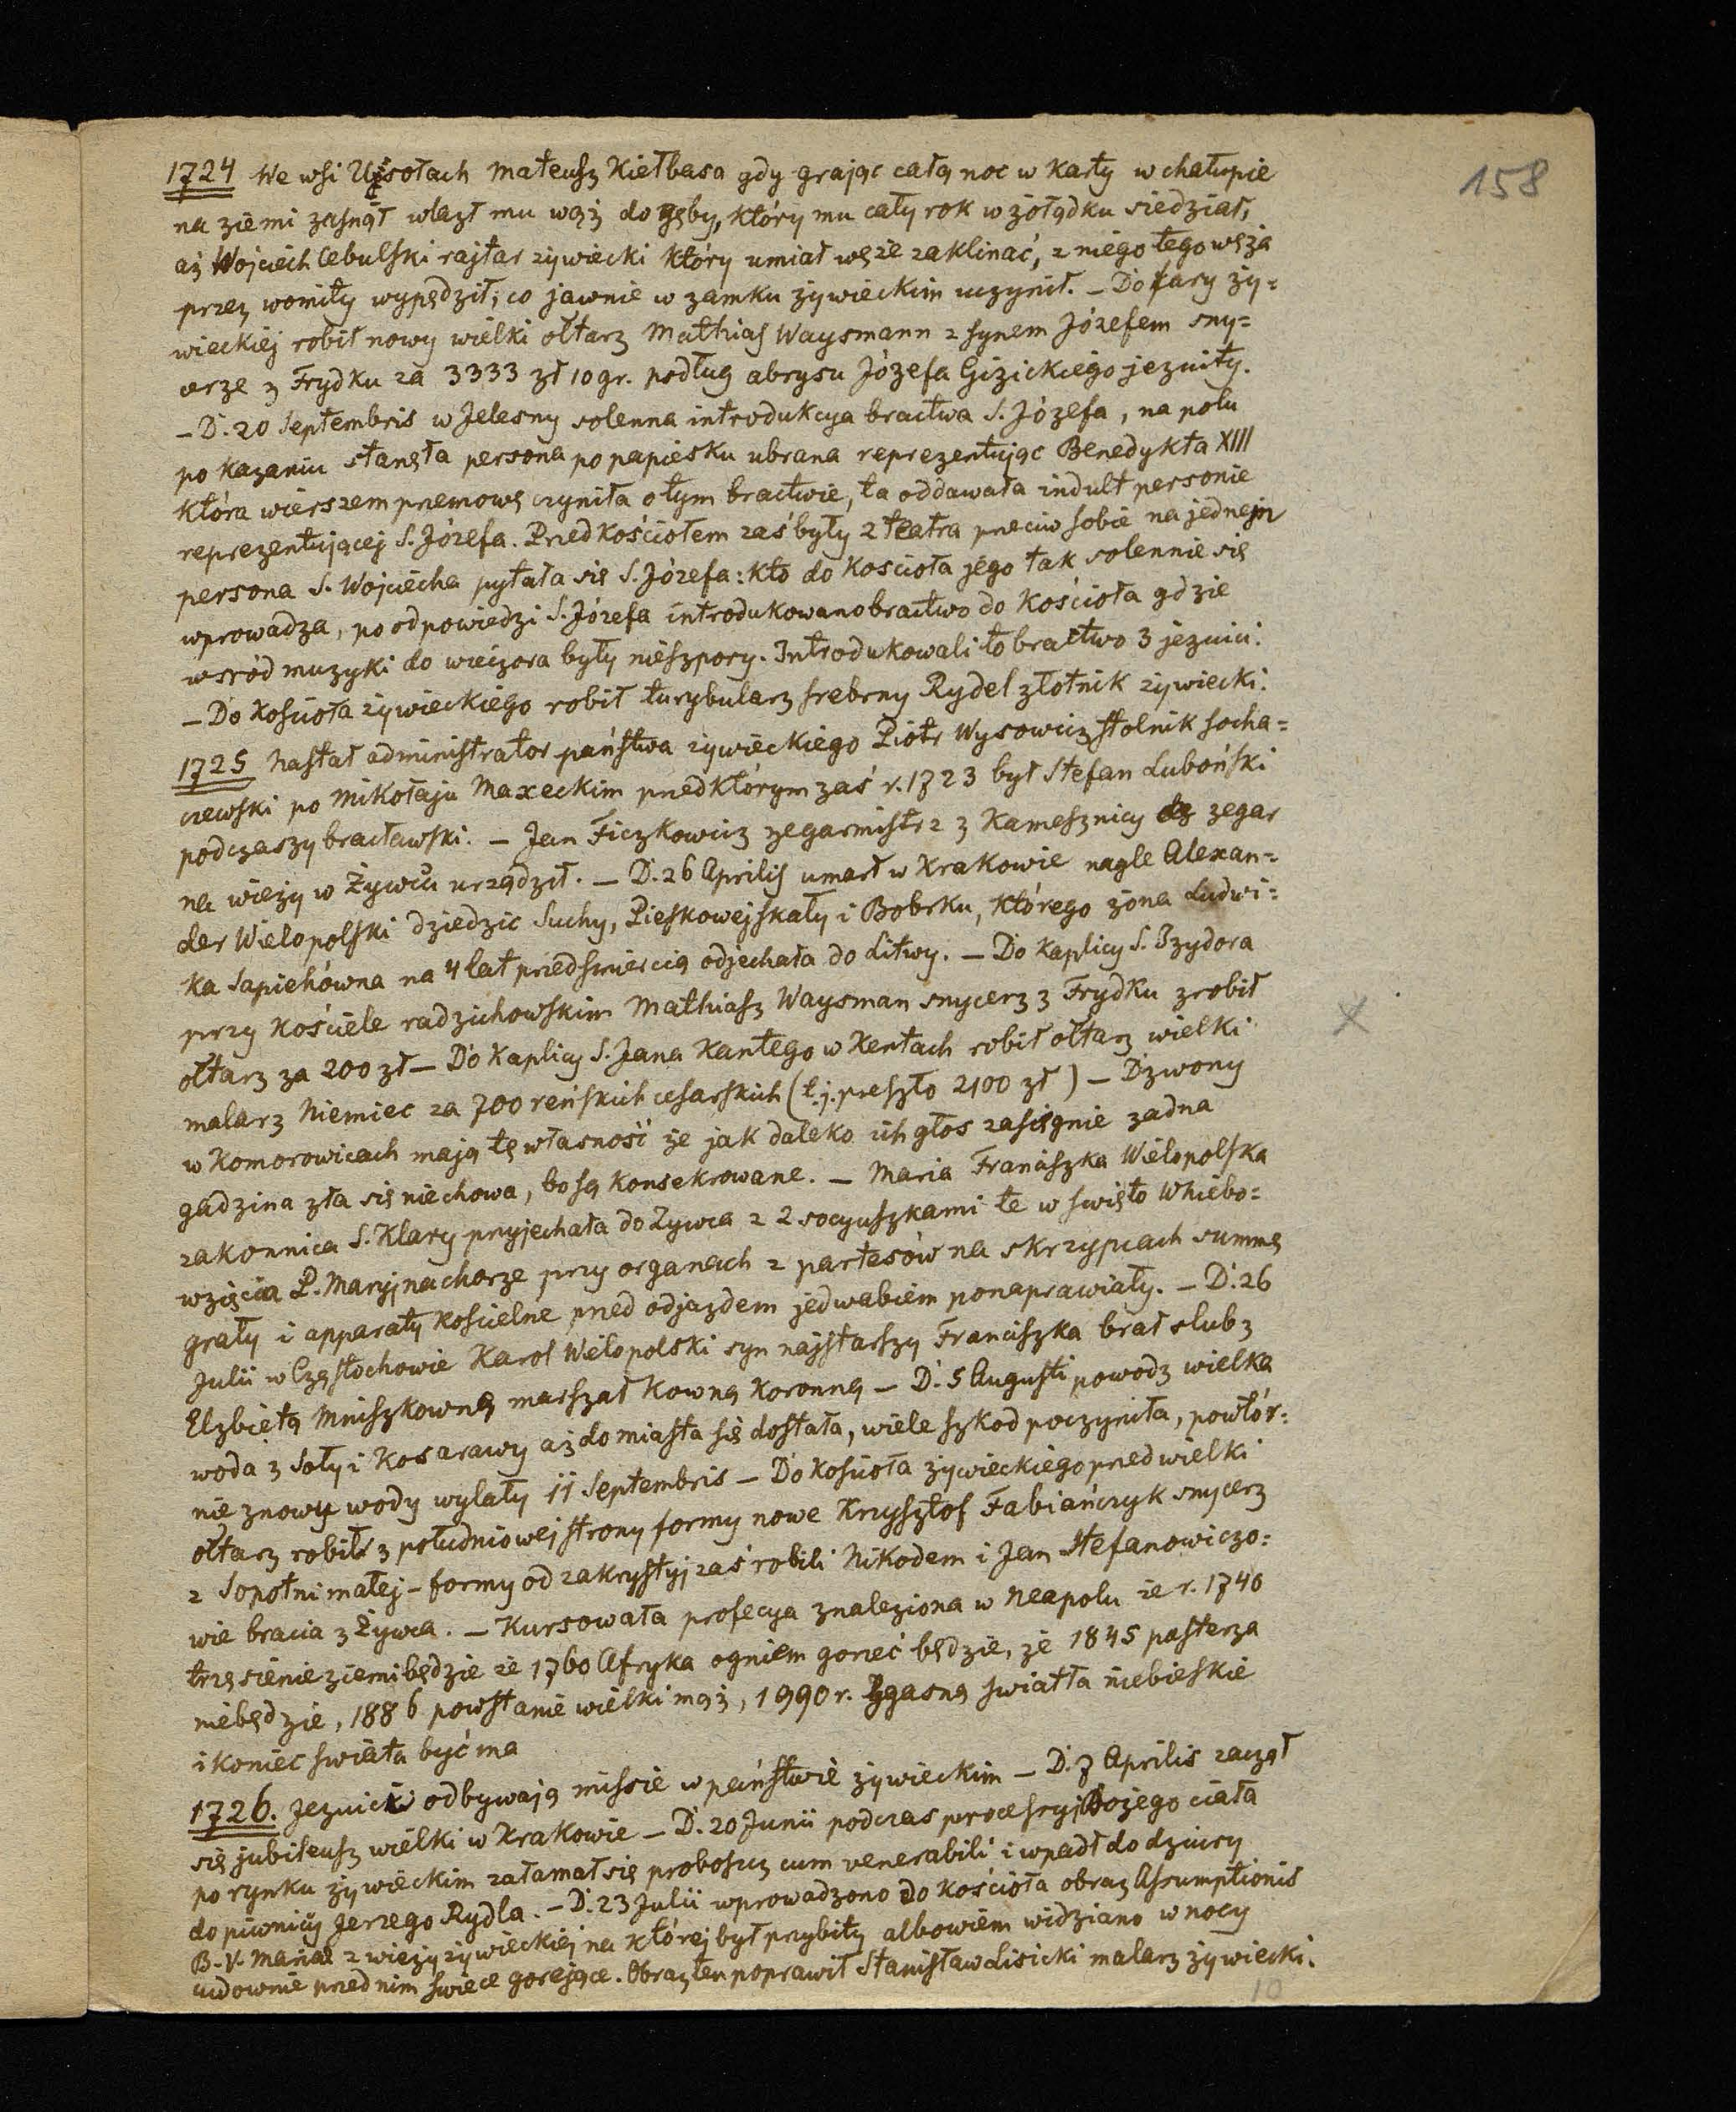 158
1724 We wsi Ujsołach Mateusz Kiełbasa gdy grając całą noc w karty w chałupie
na ziemi zasnął wlazł mu wąż do gęby, który mu cały rok w żołądku siedział,
aż Wojciech Cebulski rajtar żywiecki który umiał węże zaklinać, z niego tego węża
przez womity wypędził, co jawnie w zamku żywieckim uczynił. – Do fary ży=
wieckiej robił nowy wielki ołtarz Mathias Waysmann z synem Józefem sny=
cerze z Frydku za 3333 zł 10 gr. podług abrysu Józefa Gizickiego jezuity.
– D. 20 Septembris w Jelesny solenna introdukcya bractwa S. Józefa, na polu
po kazaniu stanęła persona po papiesku ubrana reprezentując Benedykta XIII
która wierszem przemowę czyniła o tym bractwie, ta oddawała indult personie
reprezentującej S. Józefa. Przed kościołem zaś były 2 teatra przeciw sobie na jednejn
persona S. Wojciecha pytała się S. Józefa: kto do kościoła jego tak solennie się
wprowadza, po odpowiedzi S. Józefa introdukowano bractwo do kościoła gdzie
wsród muzyki do wieczora były nieszpory. Introdukowali to bractwo 3 jezuici.
– Do kościoła żywieckiego robił turybularz srebrny Rydel złotnik żywiecki.
1725 Nastał administrator państwa żywieckiego Piotr Wysowicz stolnik socha=
czewski po Mikołaju Maxeckim przed którym zaś r. 1723 był Stefan Luboński
podczaszy bracławski. – Jan Ficzkowicz zegarmistrz z Kamesznicy zegar
na wieży w Żywcu urządził. – D. 26 Aprilis umarł w Krakowie nagle Alexan=
der Wielopolski dziedzic Suchy, Pieskowejskały i Bobrku, którego żona Ludwi=
ka Sapiehówna na 4 lat przed śmiercią odjechała do Litwy. – Do kaplicy S. Izydora
przy kościele radzichowskim Mathiasz Waysman snycerz z Frydku zrobił
ołtarz za 200 zł – Do kaplicy S. Jana Kantego w Kentach robił ołtarz wielki
malarz Niemiec za 700 reńskich cesarskich (t.j. przeszło 2100 zł) – Dzwony
w Komorowicach mają tę własność że jak daleko ich głos zasięgnie żadna
gadzina zła się nie chowa, bo są konsekrowane. – Maria Franciszka Wielopolska
zakonnica S. Klary przyjechała do Żywca z 2 socyuszkami te w święto Whiebo=
wzięcia P. Maryj na chorze przy organach z partesów na skrzypcach summę
grały i apparaty kościelne przed odjazdem jedwabiem ponaprawiały. – D. 26
Julii w Częstochowie Karol Wielopolski syn najstarszy Franciszka brał slub z
Elzbietą Mniszkowną marszałkowną koronną – D. 5 Augusti powodz wielka
woda z Soły i Kosarawy aż do miasta się dostała, wiele szkod poczyniła, powtór=
nie znowu wody wylały 11 Septembris – Do kościoła żywieckiego przed wielki
ołtarz robił z południowej strony formy nowe Krzysztof Fabiańczyk snycerz
z Sopotni małej – formy od zakrystyj zaś robili Nikodem i Jan Stefanowiczo=
wie bracia z Żywca. – Kursowała profecya znaleziona w Neapolu że r. 1740
trzęsienie ziemi będzie że 1760 Afryka ogniem gorzeć będzie, że 1845 pasterza
niebędzie, 1886 powstanie wielki mąż, 1990 r. Zgasną swiatła niebieskie
i koniec swiata być ma
1726. Jezuici odbywają missie w państwie żywieckim – D. 7 Aprilis zaczął
się jubileusz wielki w Krakowie – D. 20 Junii podczas processyj Bożego ciała
po rynku żywieckim załamał się proboszcz cum venerabili i wpadł do dziury
do piwnicy Jerzego Rydla. – D. 23 Julii wprowadzono do kościoła obraz Assumptionis
B. V. Mariae z wieży żywieckiej na której był przybity albowiem widziano w nocy
cudownie przed nim swiece gorejące. Obraz ten poprawił Stanisław Lisicki malarz żywiecki.
10